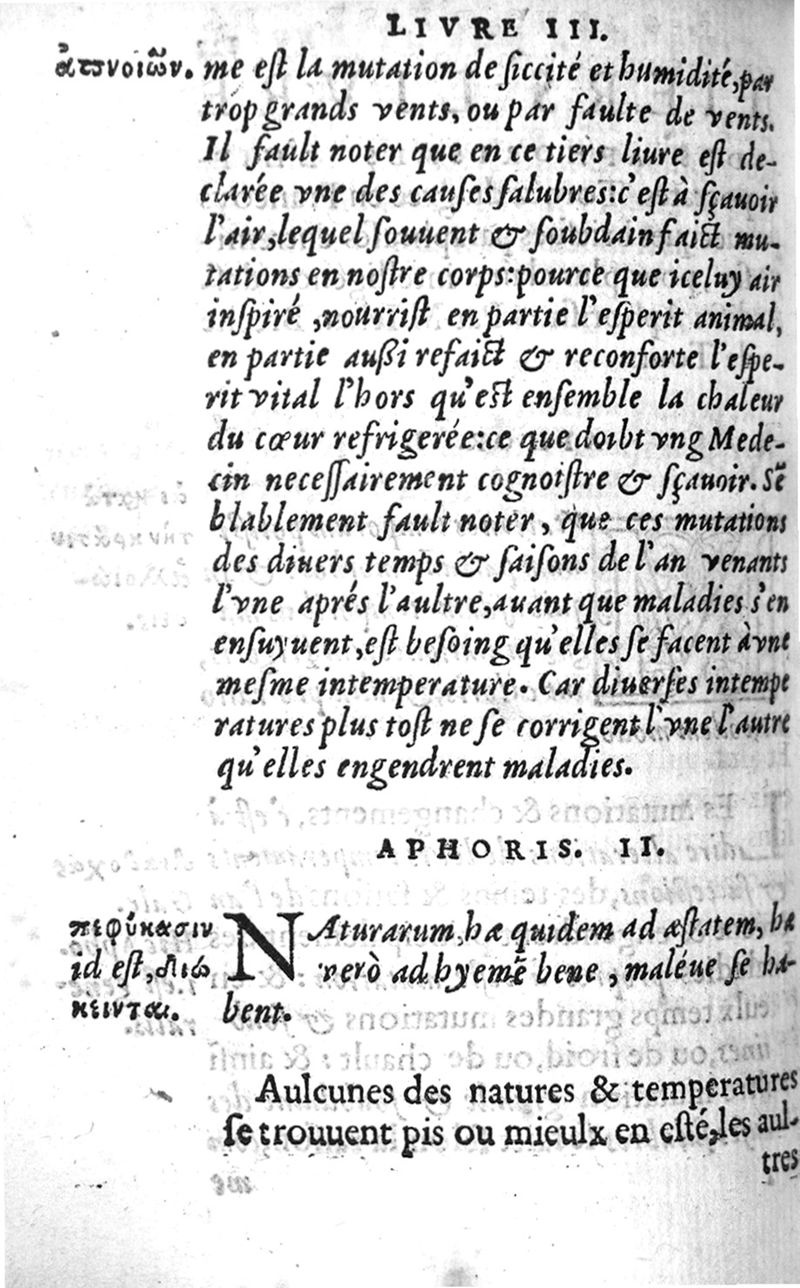 LIVRE III.
ἀπνοιῶν. me eſt la mutation de ſiccité et humidité, par
trop grands vents, ou par faulte de vents.
Il fault noter que en ce tiers liure eſt de-
clarée vne des cauſes ſalubres: c'eſt à ſçauoir
l'air, lequel ſouuent & ſoubdain faict mu-
tations en noſtre corps: pource que iceluy air
inſpiré, nourriſt en partie l'eſperit animal,
en partie außi refaict & reconforte l'eſpe-
rit vital l'hors qu'eſt enſemble la chaleur
du cœur refrigerée: ce que doibt vng Mede-
cin neceſſairement cognoiſtre & ſçauoir. Sē
blablement fault noter, que ces mutations
des diuers temps & ſaiſons de l'an venants
l'vne aprés l'aultre, auant que maladies s'en
enſuyuent, eſt beſoing qu'elles ſe facent à vne
meſme intemperature. Car diuerſes intempe
ratures plus toſt ne ſe corrigent l'vne l'autre
qu'elles engendrent maladies.
APHORIS. II.
πεφύκασιν NAturarum, hæ quidem ad æſtatem, hæ
id eſt, διό verò ad hyemē bene, maléue ſe ha-
κεινται. bent.
Aulcunes des natures & temperatures
ſe trouuent pis ou mieulx en eſté, les aul-
tres